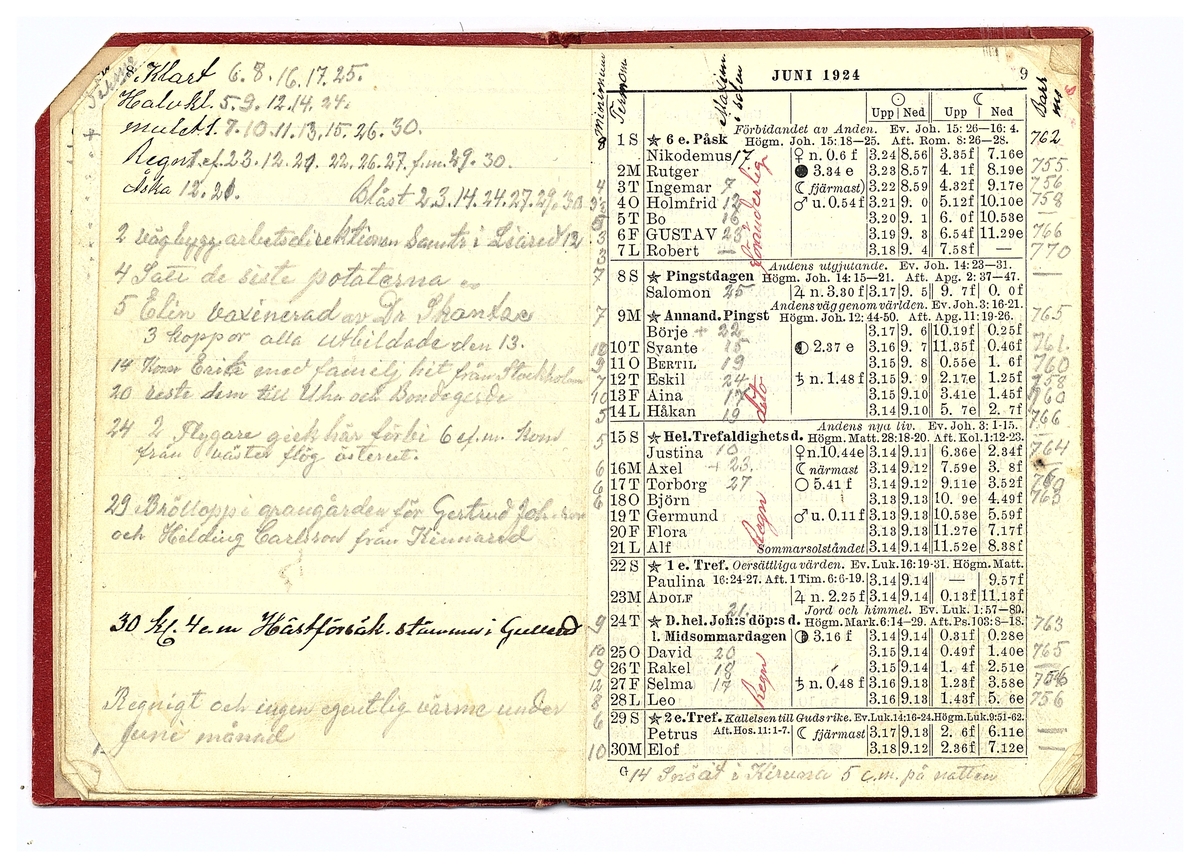 Klart 6. 8. 16. 17. 25.
Halvkl. 5. 9. 12. 14. 24.
mulet. 7. 10. 11. 13. 15. 26. 30.
Regnt. 2 3. 12. 22. 26. 27. f.m. 29. 30.
Åska 12. 21.
Blåst 2 3. 14. 24. 27. 29. 30
2 vägbygg arbetsdirektionen
4 Satt de siste potaterna
5 Elin vaxinerad av Dr Skantze
3 koppor alla utbildade den 13.
14 Kom Erik med familj hit från Stockholm
20 reste dem till Uha och Bondegärde
24 2 Flygare gick här förbi 6 e.m. kom
från väster flög österut.
29 Bröllopp i grangården för Gertrud
och Hilding Carlsson från Kinnared
30 kl. 4 e m Hästförsäk. stämma i
Regnigt och ingen egentlig värme under
Juni månad
minimum
Termom
Maxim i solen
JUNI 1924
9
Upp Ned Upp Ned
Förbidandet av Anden. Ev. Joh. 15: 26—16: 4.
8 1 S ☆ 6 e. Påsk Högm. Joh. 15: 18—25. Aft. Rom. 8: 26—28. 762
Nikodemus 17 ♀ n. 0.6 f 3.24 8.56 3.35f 7.16e
2 M Rutger ● 3.34 e 3.23 8.57 4. 1f 8.19e 755
4 3 T Ingemar 7 ☾ fjärmast 3.22 8.59 4.32f 9.17e 756
4 O Holmfrid 12 ♂ u. 0.54 f 3.21 9. 0 5.12f 10.10e 758
5 T Bo 16 3.20 9. 1 6. 0f 10.53e —
3 6 F GUSTAV 23 3.19 9. 3 6.54f 11.29e 766
7 L Robert — 3.18 9. 4 7.58f — 770
föränderlig
Andens utgjutande. Ev. Joh. 14: 23—31.
7 8 S ☆ Pingstdagen Högm. Joh. 14: 15—21. Aft. Apg. 2: 37—47. —
Salomon 25 ♃ n. 3.30 f 3.17 9. 5 9. 7f 0. 0f
Andens väg genom världen. Ev. Joh. 3: 16-21.
7 9 M ☆ Annand. Pingst Högm. Joh. 12: 44-50. Aft. Apg. 11: 19-26. 765
Börje + 22 3.17 9. 6 10.19f 0.25f
10 10 T Svante 15 ◐ 2.37 e 3.16 9. 7 11.35f 0.46f 761
11 O BERTIL 19 3.15 9. 8 0.55e 1. 6f 760
7 12 T Eskil 24 ♄ n. 1.48 f 3.15 9. 9 2.17e 1.25f 758
10 13 F Aina 17 3.15 9.10 3.41e 1.45f 760
5 14 L Håkan 19 3.14 9.10 5. 7e 2. 7f 766
dito
Andens nya liv. Ev. Joh. 3: 1-15.
5 15 S ☆ Hel. Trefaldighetsd. Högm. Matt. 28: 18-20. Aft. Kol. 1: 12-23. 764
Justina 10 ♀ n. 10.44e 3.14 9.11 6.36e 2.34f
6 16 M Axel + 23. ☾ närmast 3.14 9.12 7.59e 3. 8f
6 17 T Torborg 27 ○ 5.41 f 3.14 9.12 9.11e 3.52f
6 18 O Björn 3.13 9.13 10. 9e 4.49f 763
19 T Germund ♂ u. 0.11 f 3.13 9.13 10.53e 5.59f
20 F Flora 3.13 9.13 11.27e 7.17f
21 L Alf Sommarsolståndet 3.14 9.14 11.52e 8.38f
Regn
22 S ☆ 1 e. Tref. Oersättliga värden. Ev. Luk. 16: 19-31. Högm. Matt.
Paulina 16: 24-27. Aft. 1 Tim. 6: 6-19. 3.14 9.14 — 9.57f
23 M ADOLF ♃ n. 2.25 f 3.14 9.14 0.13f 11.13f
21. Jord och himmel. Ev. Luk. 1: 57—80.
9 24 T ☆ D. hel. Joh:s döp:s d. Högm. Mark. 6: 14—29. Aft. Ps. 103: 8—18. 763
l. Midsommardagen ◑ 3.16 f 3.14 9.14 0.31f 0.28e
10 25 O David 20 3.15 9.14 0.49f 1.40e 765
9 26 T Rakel 18 3.15 9.14 1. 4f 2.51e —
12 27 F Selma 17 ♄ n. 0.48 f 3.16 9.13 1.23f 3.58e 756
8 28 L Leo 3.16 9.13 1.43f 5. 6e 756
Regn
6 29 S ☆ 2 e. Tref. Kallelsen till Guds rike. Ev. Luk. 14: 16-24. Högm. Luk. 9: 51-62.
Petrus Aft. Hos. 11: 1-7. ☾ fjärmast 3.17 9.13 2. 6f 6.11e —
10 30 M Elof 3.18 9.12 2.36f 7.12e —
G
14 Snöat i Kiruna 5 c.m. på natten